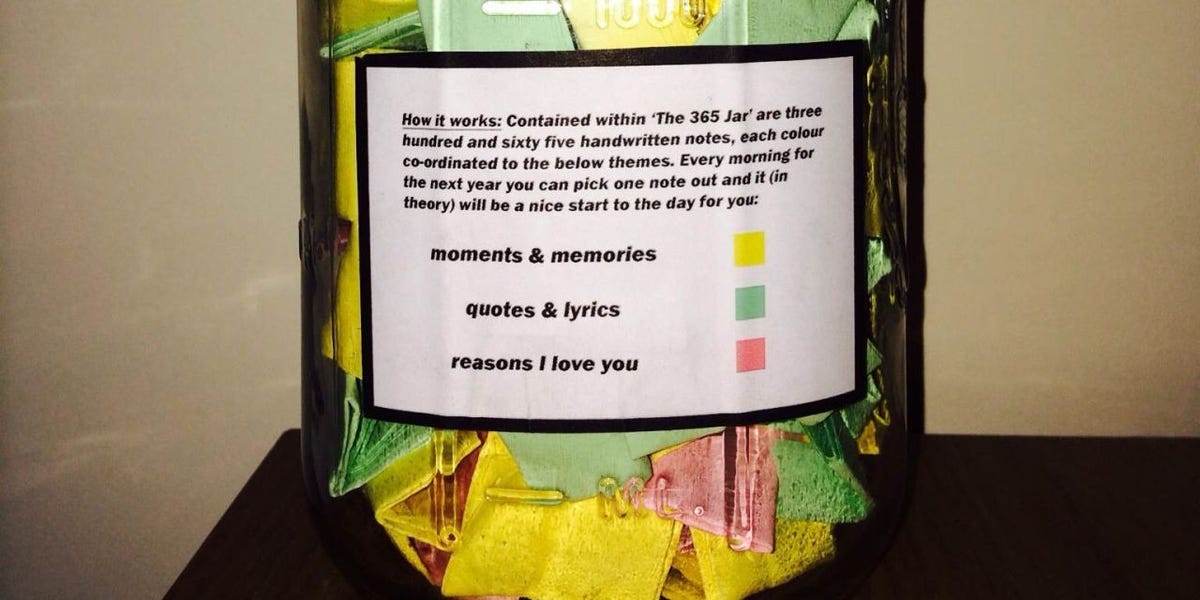 1000
How it works: Contained within ‘The 365 Jar’ are three
hundred and sixty five handwritten notes, each colour
co-ordinated to the below themes. Every morning for
the next year you can pick one note out and it (in
theory) will be a nice start to the day for you:
moments & memories
quotes & lyrics
reasons I love you
ML